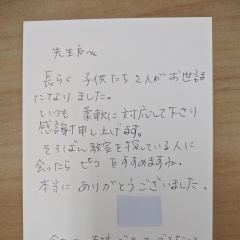 先生方へ
長らく 子供たち2人がお世話
になりました。
いつも 柔軟に対応して下さり
感謝申し上げます。
そろばん教室を探している人に
会ったら ピコ をすすめますね。
本当に ありがとうございました。